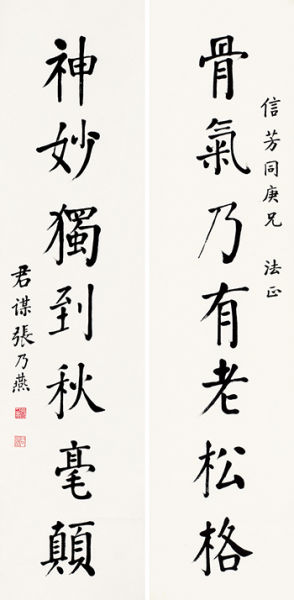 信芳同庚兄 法正
骨氣乃有老松格
神妙獨到秋毫顛
君謀張乃燕